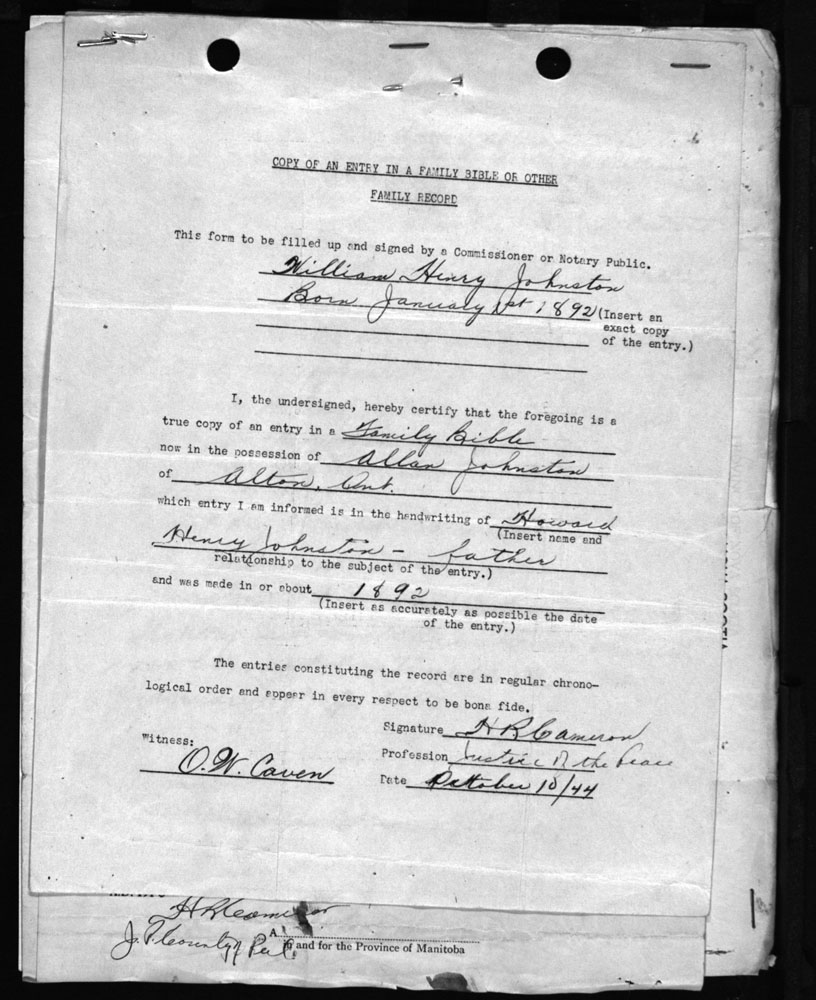 COPY OF AN ENTRY IN A FAMILY BIBLE OR OTHER
FAMILY RECORD
This form to be filled up and signed by a Commissioner or Notary Public.
William Henry Johnston
Born January 1st 1892 (Insert an
exact copy
of the entry.)
I, the undersigned, hereby certify that the foregoing is a
true copy of an entry in a Family Bible
now in the possession of Allan Johnston
of Alton, Ont.
which entry I am informed is in the handwriting of Howard
(Insert name and
Henry Johnston - father
relationship to the subject of the entry.)
and was made in or about 1892
(Insert as accurately as possible the date
of the entry.)
The entries constituting the record are in regular chrono-
logical order and appear in every respect to be bona fide.
Signature H R Cameron
Witness:
O. W. Caven
Profession Justice of the Peace
Date October 10/44
H R Cameron
J. P. County of Peel
A
in and for the Province of Manitoba